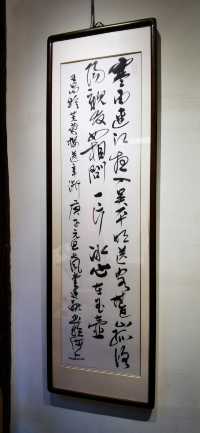 寒雨連江夜入吴平明送客楚山孤洛
陽親友如相問一片冰心在玉壺
王昌龄芙蓉楼送辛渐 庚子元旦